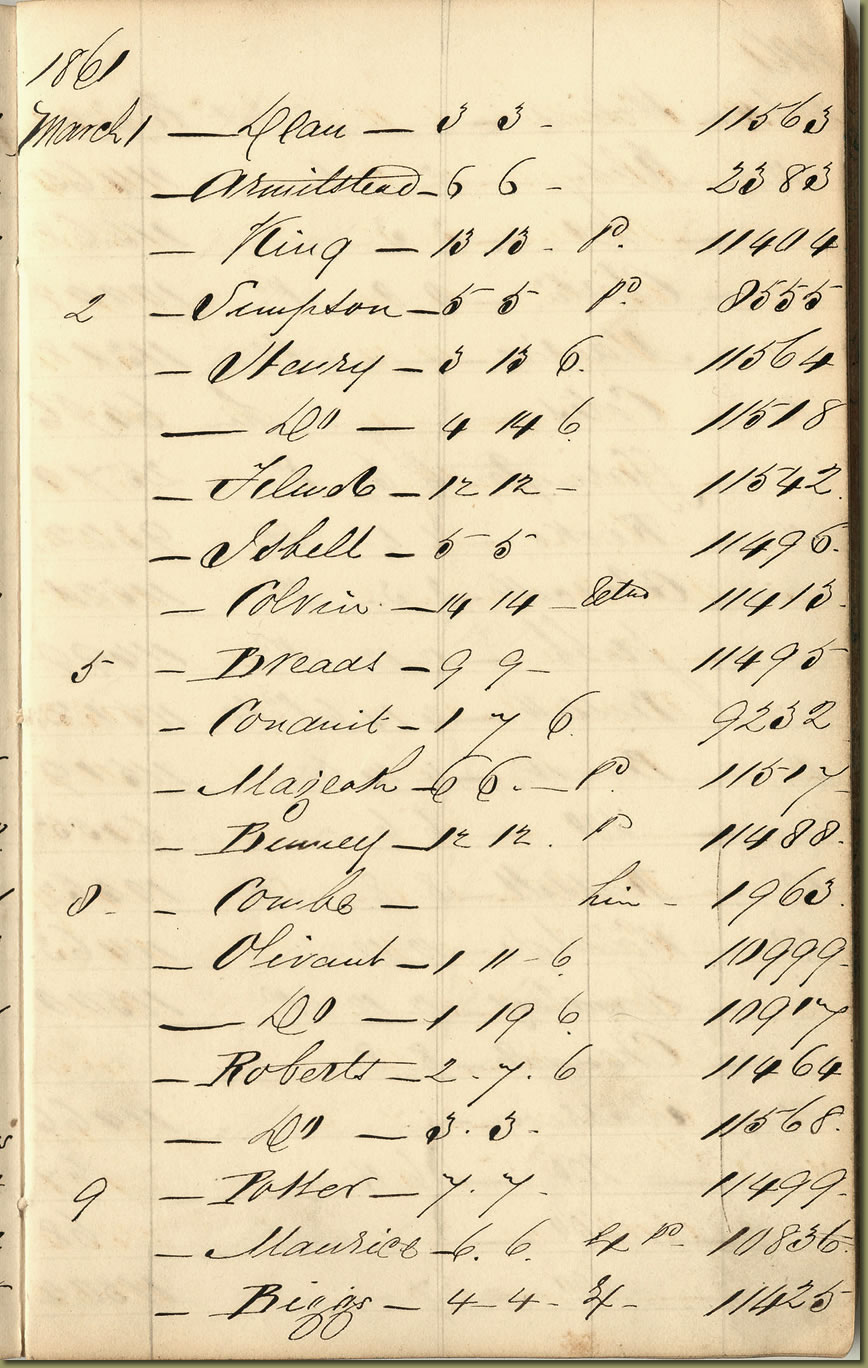 1861
March 1 — Dean — 3 3 - 11563
— Armitstead — 6 6 - 2383
— King — 13 13 - P. 11404
2 — Simpson — 5 5 Pd 8555
— Henry — 3 13 6. 11564
— Do — 4 14 6 11518
— — 12 12 - 11542
— Isbell — 5 5 11496.
— Colvin — 14 14 — 11413.
5 — Breads — 9 9 — 11495
— Conduit — 1 7 6 9232
— Mageoh — 6 6. — P. 11517
— Binney — 12 12. P 11488.
8 - — Combe — - 1963.
— Olivaut — 1 11 - 6. 10999.
— Do — 1 19 6 10917
— Roberts — 2. 7. 6 11464
— Do — 3. 3. 11568.
9 — Potter — 7. 7. 11499.
— Maurice — 6. 6. Pd 10836.
— Biggs — 4 - 4 - 11425